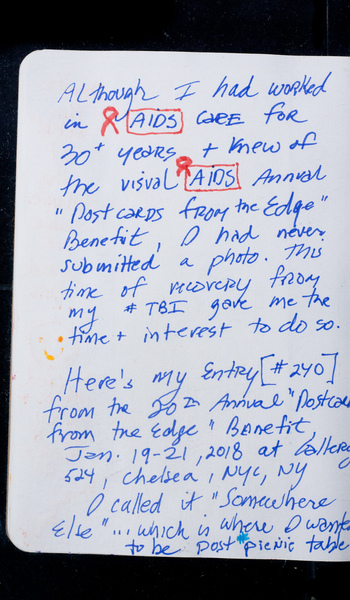 Although I had worked
in AIDS CARE for
30+ years + knew of
the visual AIDS Annual
"Postcards from the Edge"
Benefit, I had never
submitted a photo. This
time of recovery from
my # TBI gave me the
time + interest to do so.
Here's my Entry [#240]
from the 20th Annual "Postcar
from the Edge" Benefit,
Jan. 19-21, 2018 at Gallery
524, Chelsea, NYC, NY
I called it "Somewhere
Else"... which is where I wante
to be post picnic table